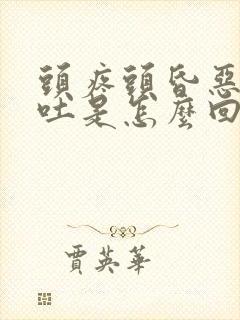 頭疼頭昏惡
吐是怎麼回
賈英華